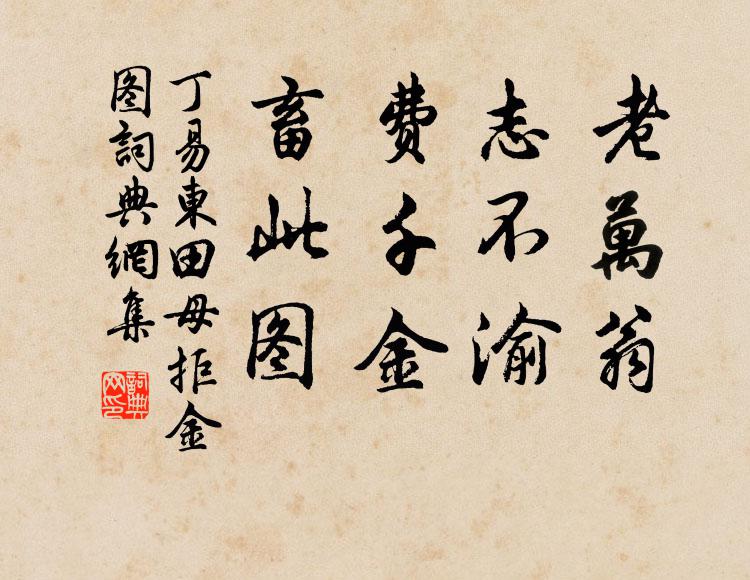 老萬翁
志不渝
費千金
畜此图
丁易東田母拒金
图詞典網集
詞典
网印